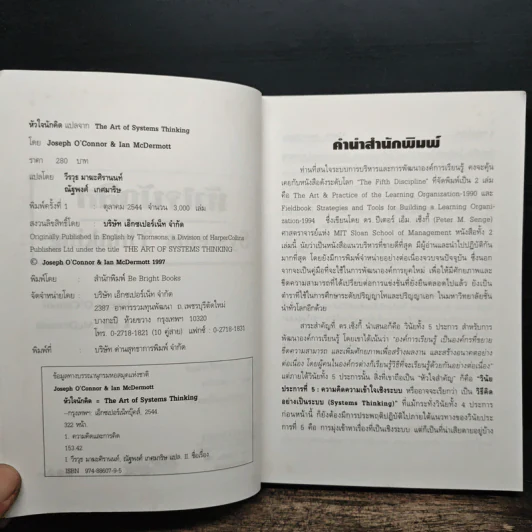 หัวใจนักคิด แปลจาก The Art of Systems Thinking
โดย Joseph O'Connor & Ian McDermott
ราคา 280 บาท
แปลโดย วีรวุธ มาฆะศิรานนท์
ณัฐพงศ์ เกศมาริษ
พิมพ์ครั้งที่ 1 ตุลาคม 2544 จำนวน 3,000 เล่ม
สงวนลิขสิทธิ์โดย บริษัท เอ็กซเปอร์เน็ท จำกัด
Originally Published in English by Thorsons, a Division of HarperCollins
Publishers Ltd under the title THE ART OF SYSTEMS THINKING
© Joseph O'Connor & Ian McDermott 1997
พิมพ์โดย สำนักพิมพ์ Be Bright Books
จัดจำหน่ายโดย บริษัท เอ็กซเปอร์เน็ท จำกัด
2387 อาคารรวมทุนพัฒนา ถ.เพชรบุรีตัดใหม่
บางกะปิ ห้วยขวาง กรุงเทพฯ 10320
โทร. 0-2718-1821 (10 คู่สาย) แฟกซ์ 0-2718-1831
พิมพ์ที่ บริษัท ด่านสุทธาการพิมพ์ จำกัด
ข้อมูลทางบรรณานุกรมหอสมุดแห่งชาติ
Joseph O'Connor & Ian McDermott
หัวใจนักคิด = The Art of Systems Thinking
--กรุงเทพฯ: เอ็กซเปอร์เน็ทบุ๊คส์, 2544.
322 หน้า
1. ความคิดและการคิด
153.42
I. วีรวุธ มาฆะศิรานนท์, ณัฐพงศ์ เกศมาริษ แปล. II. ชื่อเรื่อง.
ISBN 974-88607-9-5
คำนำสำนักพิมพ์
ท่านที่สนใจระบบการบริหารและการพัฒนาองค์การเรียนรู้ คงจะคุ้น
เคยกับหนังสือดังระดับโลก "The Fifth Discipline" ที่จัดพิมพ์เป็น 2 เล่ม
คือ The Art & Practice of the Learning Organization-1990 และ
Fieldbook: Strategies and Tools for Building a Learning Organi-
zation-1994 ซึ่งเขียนโดย ดร.ปีเตอร์ เอ็ม. เซ็งกี้ (Peter M. Senge)
ศาสตราจารย์แห่ง MIT Sloan School of Management หนังสือทั้ง 2
เล่มนี้ นับว่าเป็นหนังสือแนวบริหารที่ขายดีที่สุด มีผู้อ่านและนำไปปฏิบัติกัน
มากที่สุด โดยยังมีการพิมพ์จำหน่ายอย่างต่อเนื่องจวบจนปัจจุบัน ซึ่งนอก
จากจะเป็นคู่มือที่จะใช้ในการพัฒนาองค์การยุคใหม่ เพื่อให้มีศักยภาพและ
ขีดความสามารถที่ได้เปรียบต่อการแข่งขันที่ยั่งยืนตลอดไปแล้ว ยังเป็น
ตำราที่ใช้ในการศึกษาระดับปริญญาโทและปริญญาเอก ในมหาวิทยาลัยชั้น
นำทั่วโลกอีกด้วย
สาระสำคัญที่ ดร.เซ็งกี้ นำเสนอก็คือ วินัยทั้ง 5 ประการ สำหรับการ
พัฒนาองค์การเรียนรู้ โดยเขาได้เน้นว่า "องค์การเรียนรู้ เป็นองค์การที่ขยาย
ขีดความสามารถ และเพิ่มศักยภาพเพื่อสร้างผลงาน และสร้างอนาคตอย่าง
ต่อเนื่อง โดยผู้คนในองค์การต่างก็เรียนรู้วิธีที่จะเรียนรู้ด้วยกันอย่างต่อเนื่อง"
แต่ภายใต้วินัยทั้ง 5 ประการนั้น สิ่งที่เขาถือเป็น "หัวใจสำคัญ" ก็คือ "วินัย
ประการที่ 5 : ความคิดความเข้าใจเชิงระบบ หรืออาจจะเรียกว่า เป็น วิธีคิด
อย่างเป็นระบบ (Systems Thinking)" ที่แม้กระทั่งวินัยทั้ง 4 ประการ
ก่อนหน้านี้ ก็ยังต้องมีการประพฤติปฏิบัติไปภายใต้แนวทางของวินัยประ
การที่ 5 คือ การมุ่งเข้าหาเรื่องที่เป็นเชิงระบบ แต่ก็เป็นที่น่าเสียดายอยู่บ้าง